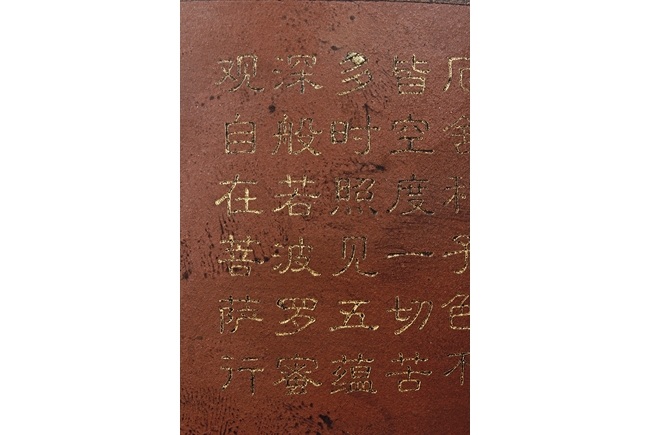 观自在菩萨行
深般若波罗蜜
多时照见五蕴
皆空度一切苦
厄舍利子色不